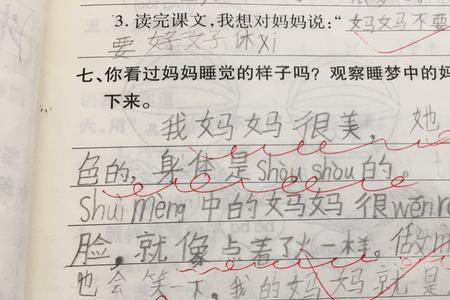 3. 读完课文,我想对妈妈说:“妈妈不要
要好好休xi
七、你看过妈妈睡觉的样子吗?观察睡梦中的妈
下来。
我妈妈很美,她
色的,身体是Shòu shòu的。
Shuì mèng中的妈妈很wēn
脸,就像点着了火一样。做
也会笑一下,我的妈妈就是